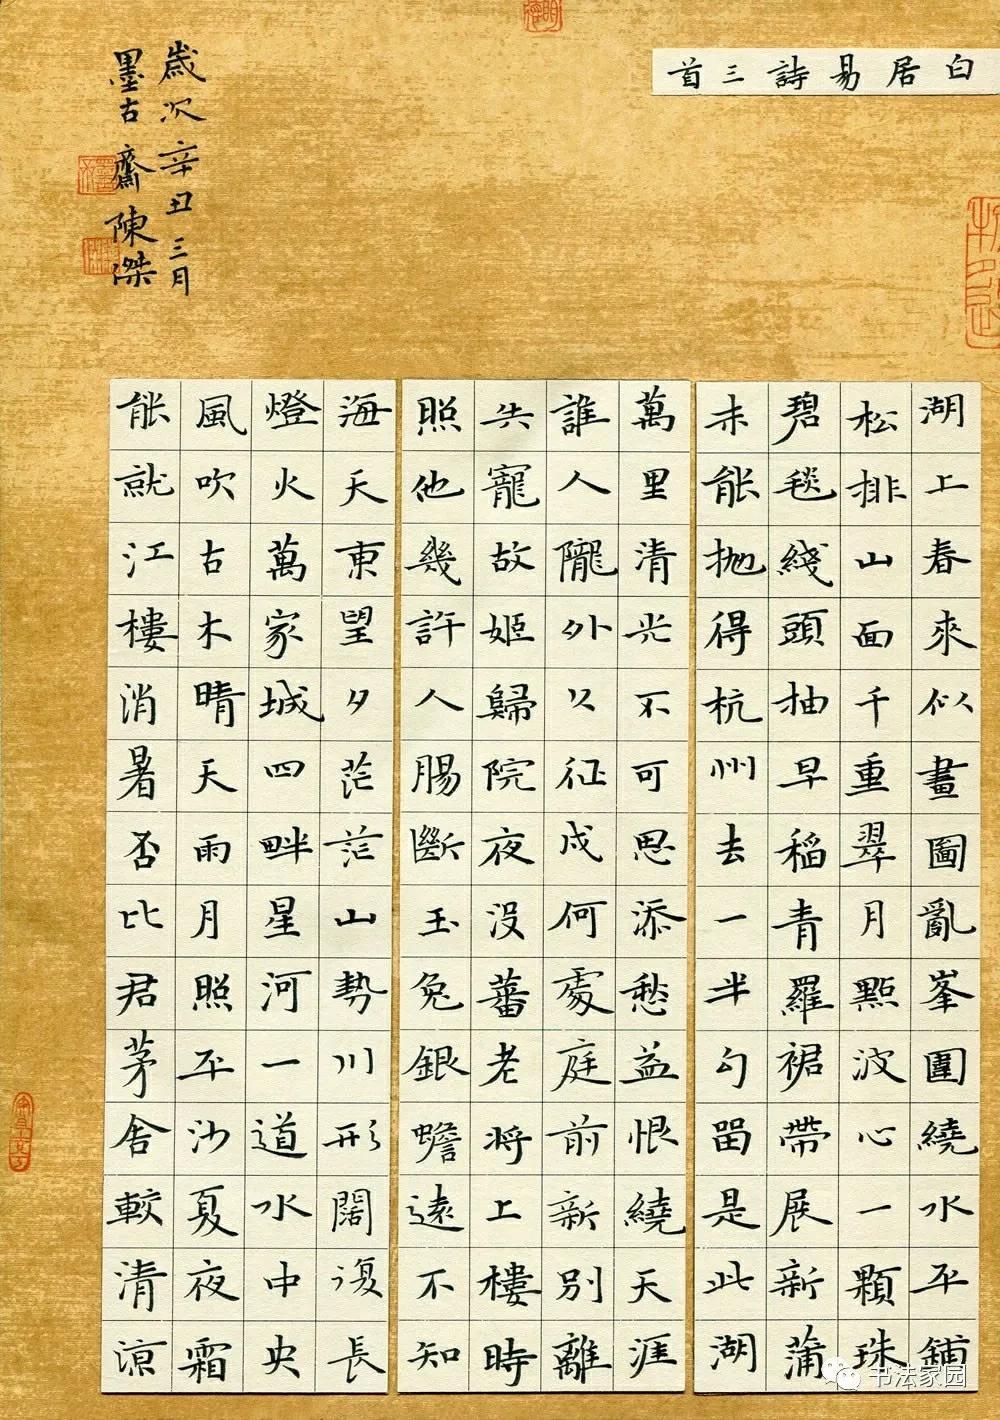 白居易詩三首
湖上春來似畫圖亂峯圍繞水平鋪
松排山面千重翠月點波心一顆珠
碧毯綫頭抽早稻青羅裙帶展新蒲
未能抛得杭州去一半勾留是此湖
萬里清光不可思添愁益恨繞天涯
誰人隴外久征戍何處庭前新別離
失寵故姬歸院夜没蕃老將上樓時
照他幾許人腸斷玉兔銀蟾遠不知
海天東望夕茫茫山勢川形闊復長
燈火萬家城四畔星河一道水中央
風吹古木晴天雨月照平沙夏夜霜
能就江樓消暑否比君茅舍較清涼
歲次辛丑三月
墨古齋陳傑
书法家园